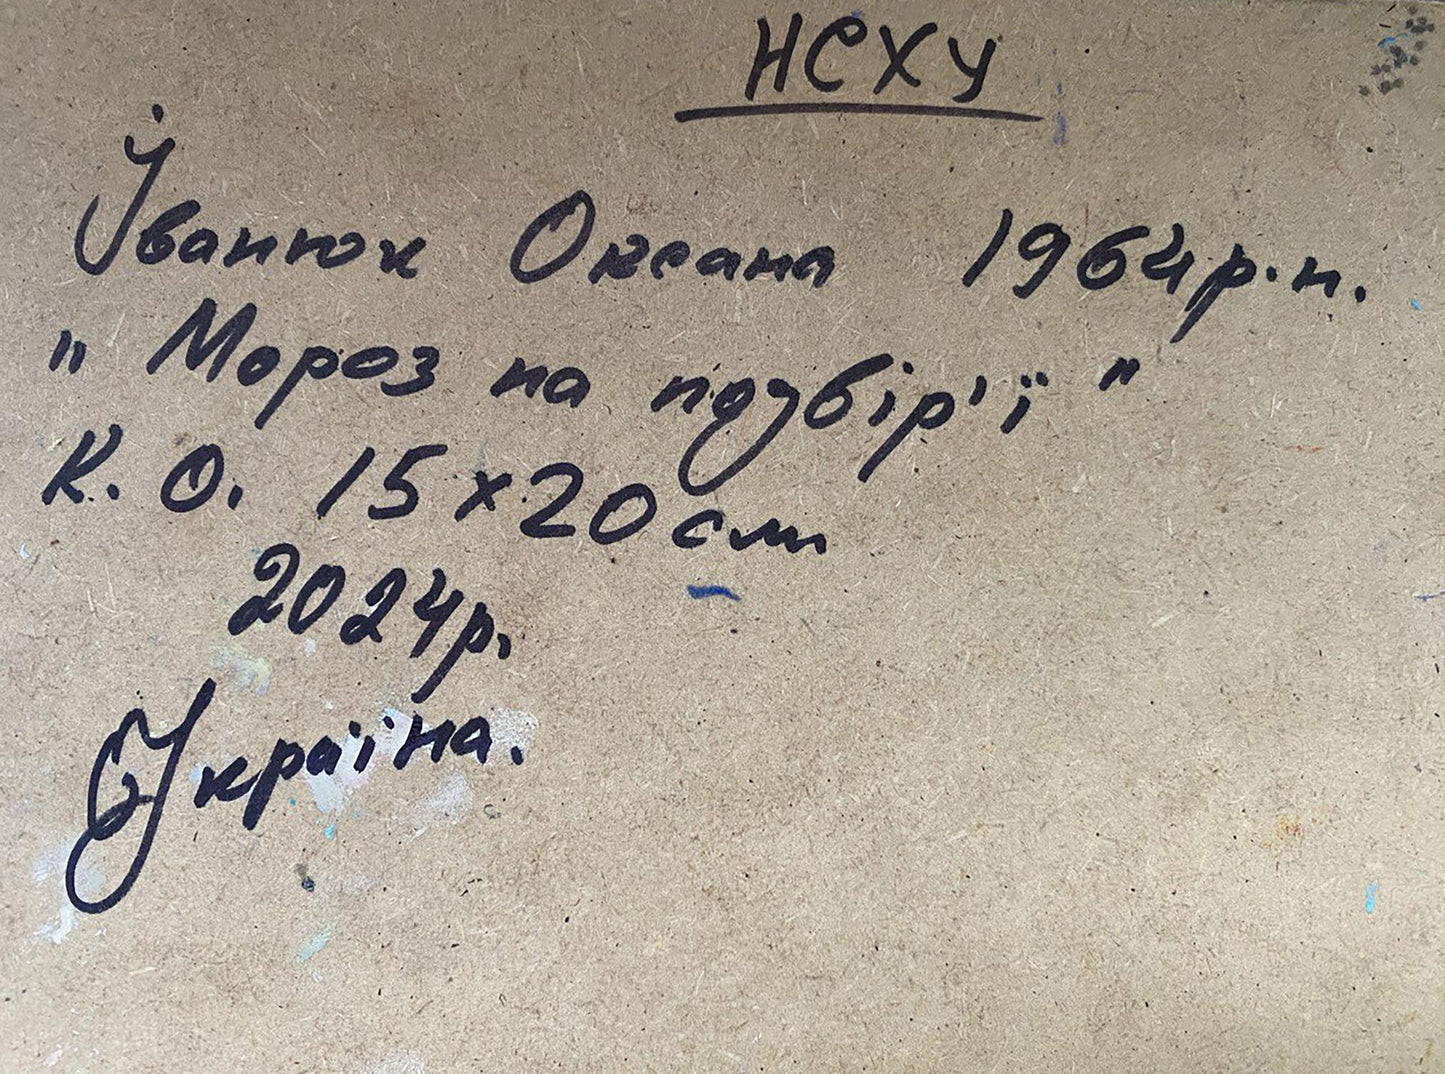 НСХУ
Іванюк Оксана 1964 р.н.
„ Мороз на подвір'ї "
К. О. 15х20 см
2024р.
Україна.